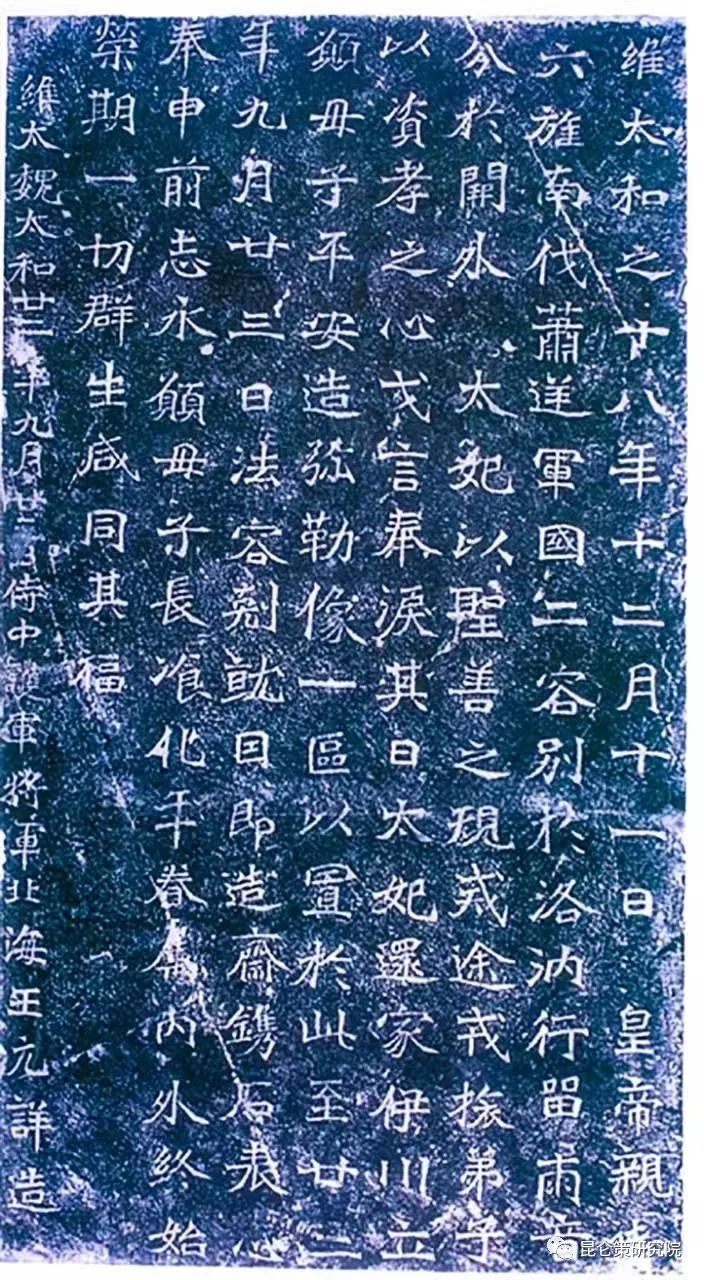 維太和之十八年十二月十一日皇帝親御
六旌南伐蕭逆軍國二容別於洛汭行留兩音
分於闕外太妃以聖善之規戒途戎旅弟子
以資孝之心戈言奉淚其日太妃還家伊川立
願母子平安造弥勒像一區以置於此至廿二
年九月廿三日法容剋就因即造齋鐫石表心
奉申前志永願母子長飡化年眷屬內外終始
榮期一切群生咸同其福
維太魏太和廿二年九月廿三日侍中護軍將軍北海王元詳造
昆仑策研究院